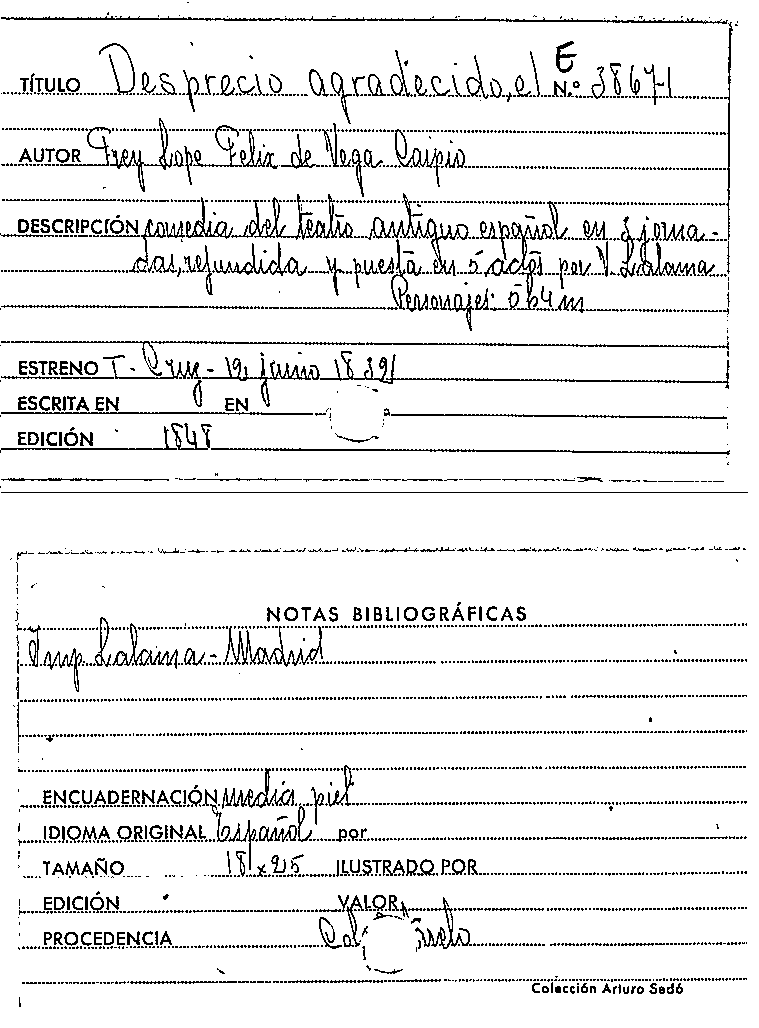 E
TÍTULO Desprecio agradecido, el N.º 38671
AUTOR Frey Lope Felix de Vega Caipio
DESCRIPCIÓN comedia del teatro antiguo español en 3 jorna-
das, refundida y puesta en 5 actos por V. Lalama
Personajes:
ESTRENO T. Cruz - 12 junio
ESCRITA EN EN
EDICIÓN 1848
NOTAS BIBLIOGRÁFICAS
Imp Lalama - Madrid
ENCUADERNACIÓN media piel
IDIOMA ORIGINAL Español por
TAMAÑO 18 x 25 ILUSTRADO POR
EDICIÓN VALOR
PROCEDENCIA
Colección Arturo Sedó